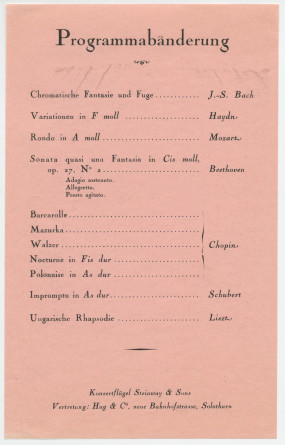 Programmabänderung
Chromatische Fantasie und Fuge ............ J.-S. Bach
Variationen in F moll ........................ Haydn
Rondo in A moll ............................ Mozart
Sonata quasi una Fantasia in Cis moll,
op. 27, Nº 2 ............................ Beethoven
Adagio sostenuto.
Allegretto.
Presto agitato.
Barcarolle ....................................
Mazurka ....................................
Walzer .................................... Chopin
Nocturne in Fis dur ........................
Polonaise in As dur ........................
Impromptu in As dur ...................... Schubert
Ungarische Rhapsodie ...................... Liszt
Konzertflügel Steinway & Sons
Vertretung: Hug & Cº, neue Bahnhofstrasse, Solothurn